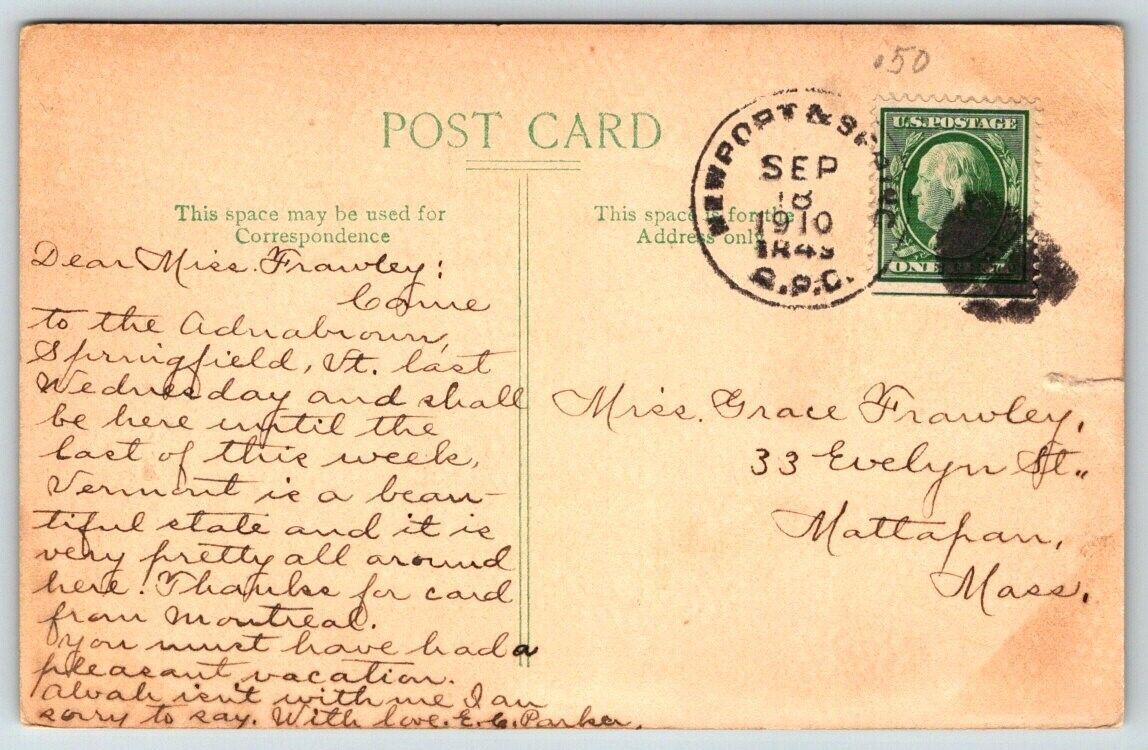 .50
POST CARD
U.S. POSTAGE
NEWPORT & SPRING
SEP
18
1910
R.P.O.
This space may be used for
Correspondence
This space is for the
Address only
Dear Miss. Frawley:
Came
to the Adnabrown,
Springfield, Vt. last
Wednesday and shall
be here until the
last of this week.
Vermont is a beau-
tiful state and it is
very pretty all around
here. Thanks for card
from Montreal.
You must have had a
pleasant vacation.
Alvah isn't with me I am
sorry to say. With love. E. C. Parker.
Miss. Grace Frawley,
33 Evelyn St.,
Mattapan,
Mass.